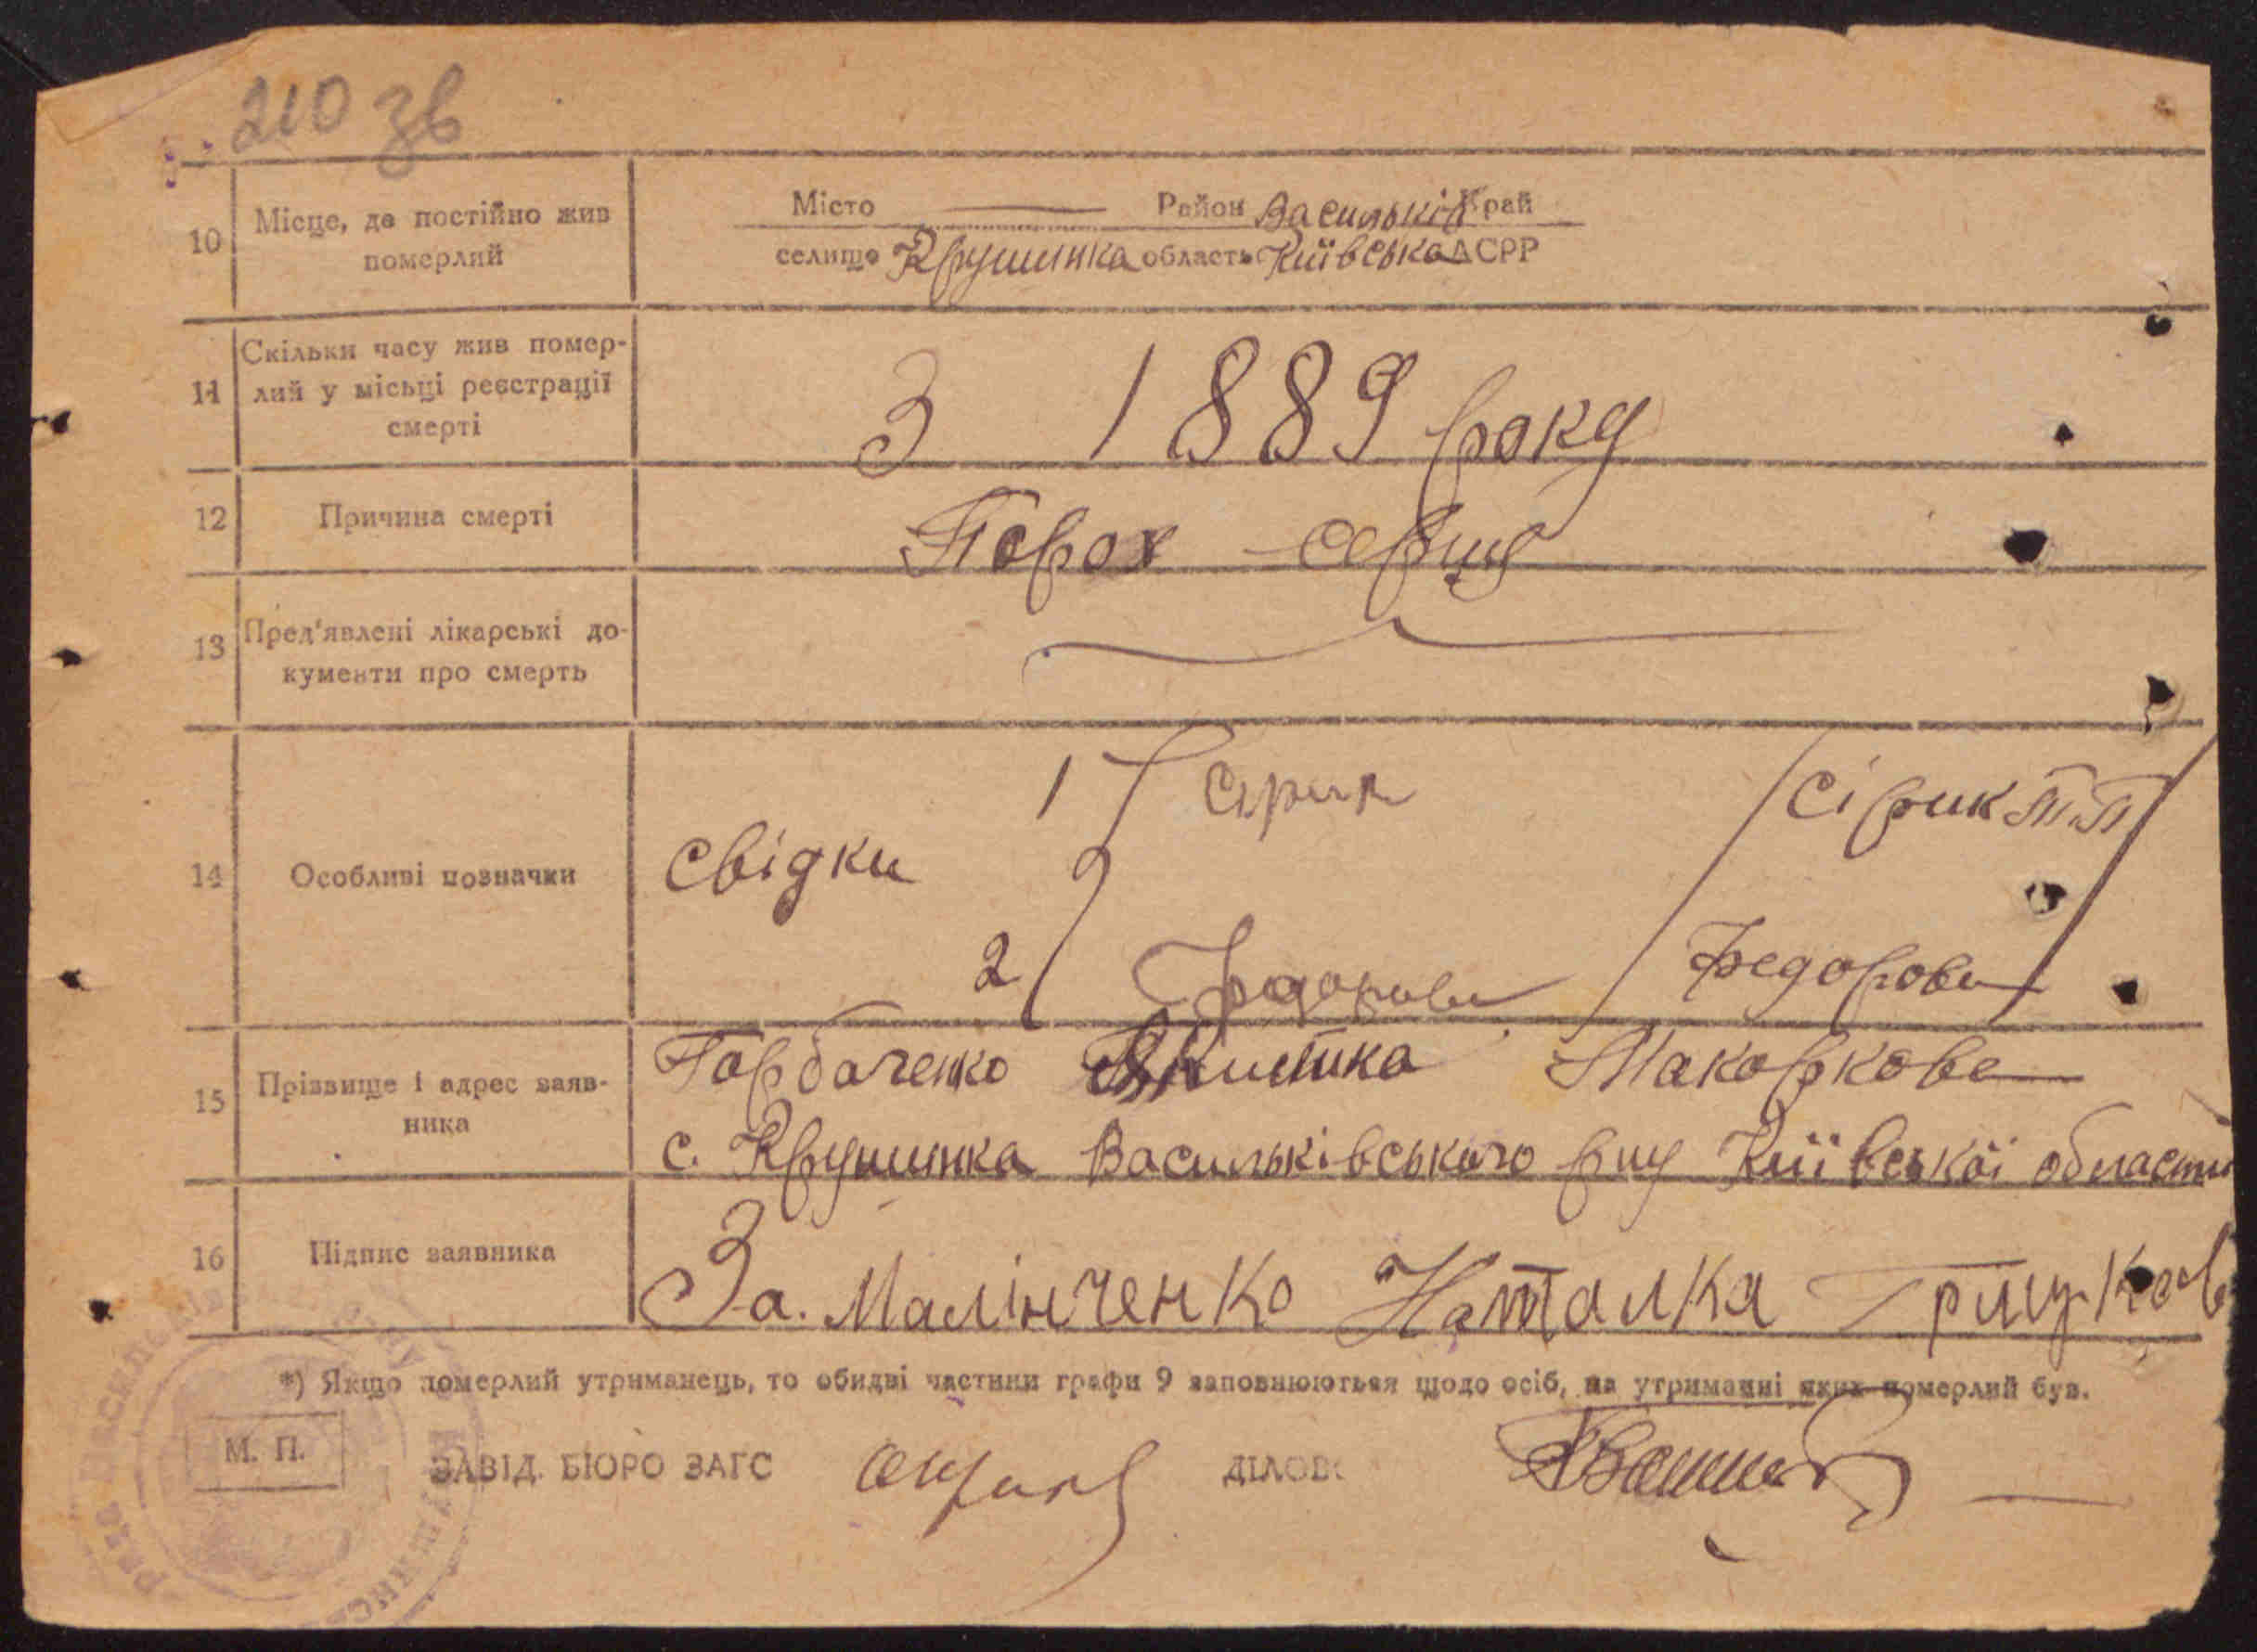 210 зв
10 Місце, де постійно жив померлий
Місто Район Васильків Край
селище Крушинка область Київська АСРР
11 Скільки часу жив помер-
лий у місці реєстрації
смерті
З 1889 року
12 Причина смерті
Порок серця
13 Пред'явлені лікарські до-
кументи про смерть
14 Особливі позначки
свідки
1/ Сірик /Сірик П.П/
2/ Федорова /Федорова/
15 Прізвище і адрес заяв-
ника
Горбаченко Макаркова
с. Крушинка Васильківського р-ну Київської области
16 Підпис заявника
За. Малінченко Наталка
*) Якщо померлий утриманець, то обидві частини графи 9 заповнюються щодо осіб, на утриманні яких померлий був.
М. П.
ЗАВІД. БЮРО ЗАГС ДІЛОВ